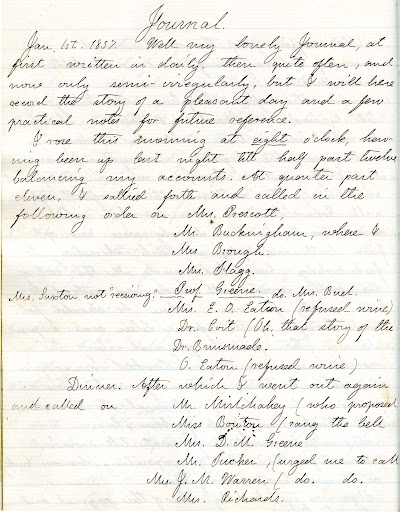 Journal.
Jan. 1st. 1857. Well my lonely Journal, at
first written in daily, then quite often, and
now only semi-irregularly, but I will here
record the story of a pleasant day and a few
practical notes for future reference.
I rose this morning at eight o'clock, hav-
ing been up last night till half past twelve
balancing my accounts. At quarter past
eleven, I sallied forth and called in the
following order on Mrs. Prescott,
Mr. Buckingham, where I
Mrs Brough.
Mrs. Flagg.
Mrs. Saxton not "receiving." Prof Greene do. Mrs. Buel.
Mrs. E. O. Eaton (refused wine)
Dr. (Oh, that story of the
Dr. Brinsmade.
O. Eaton (refused wine)
Dinner. After which I went out again
and called on Mr. (who proposed
Miss Bouton (rang the bell
Mrs. D. M. Greene
Mr. Tucker, (urged me to call
Mrs. J. M. Warren (do. do.
Mrs. Richards.